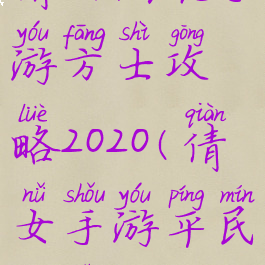 yóu fāng shì gōng
游方士攻
lüè qiàn
略2020(倩
nǚ shǒu yóu píng mín
女手游平民